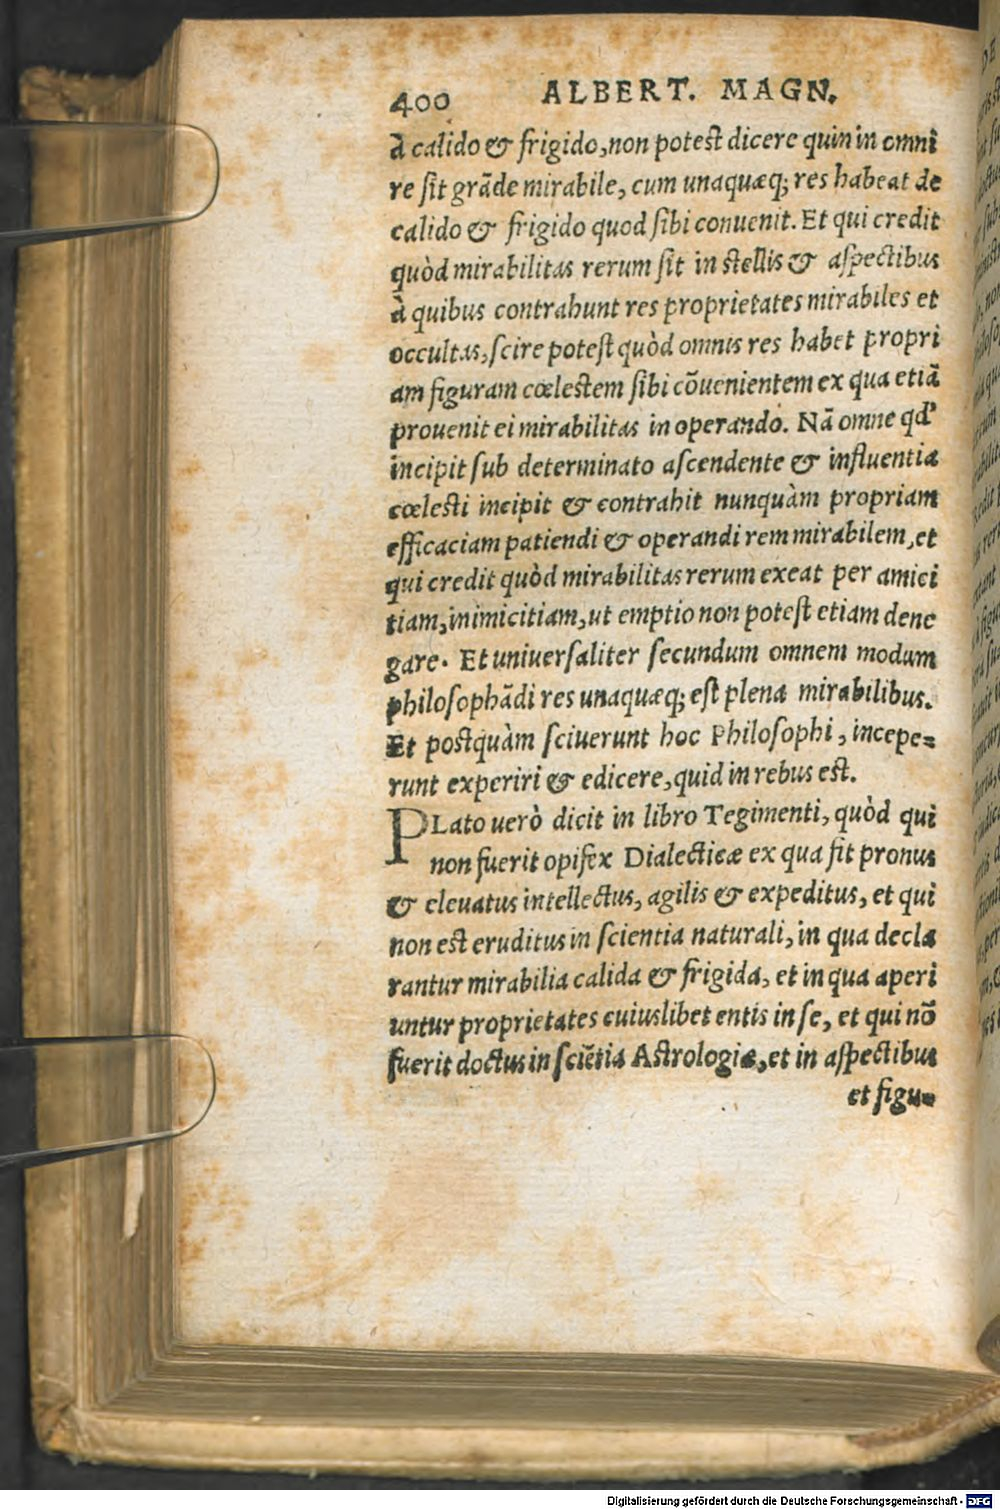 400 ALBERT. MAGN.
à calido & frigido, non potest dicere quin in omni
re sit grãde mirabile, cum unaquæq; res habeat de
calido & frigido quod sibi conuenit. Et qui credit
quòd mirabilitas rerum sit in stellis & aspectibus
à quibus contrahunt res proprietates mirabiles et
occultas, scire potest quòd omnis res habet propri
am figuram cœlestem sibi cõuenientem ex qua etiã
prouenit ei mirabilitas in operando. Nã omne qd'
incipit sub determinato ascendente & influentia
cœlesti incipit & contrahit nunquàm propriam
efficaciam patiendi & operandi rem mirabilem, et
qui credit quòd mirabilitas rerum exeat per amici
tiam, inimicitiam, ut emptio non potest etiam dene
gare. Et uniuersaliter secundum omnem modum
philosophãdi res unaquæq; est plena mirabilibus.
Et postquàm sciuerunt hoc Philosophi, incepe=
runt experiri & edicere, quid in rebus est.
PLato uerò dicit in libro Tegimenti, quòd qui
non fuerit opifex Dialecticæ ex qua fit pronus
& eleuatus intellectus, agilis & expeditus, et qui
non est eruditus in scientia naturali, in qua decla
rantur mirabilia calida & frigida, et in qua aperi
untur proprietates cuiuslibet entis in se, et qui nõ
fuerit doctus in sciẽtia Astrologiæ, et in aspectibus
et figu=
Digitalisierung gefördert durch die Deutsche Forschungsgemeinschaft - DFG